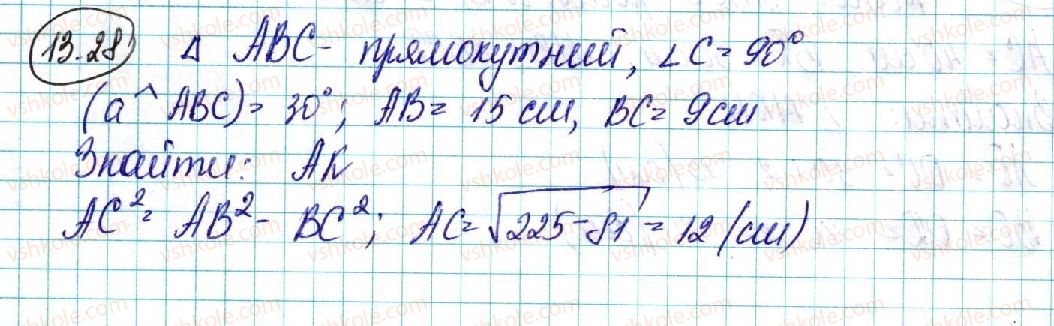 13.28 Δ ABC - прямокутний, ∠C = 90°
(a ^ ABC) = 30°; AB = 15 см, BC = 9 см
Знайти: AK
AC² = AB² - BC²; AC = √225-81 = 12 (см)